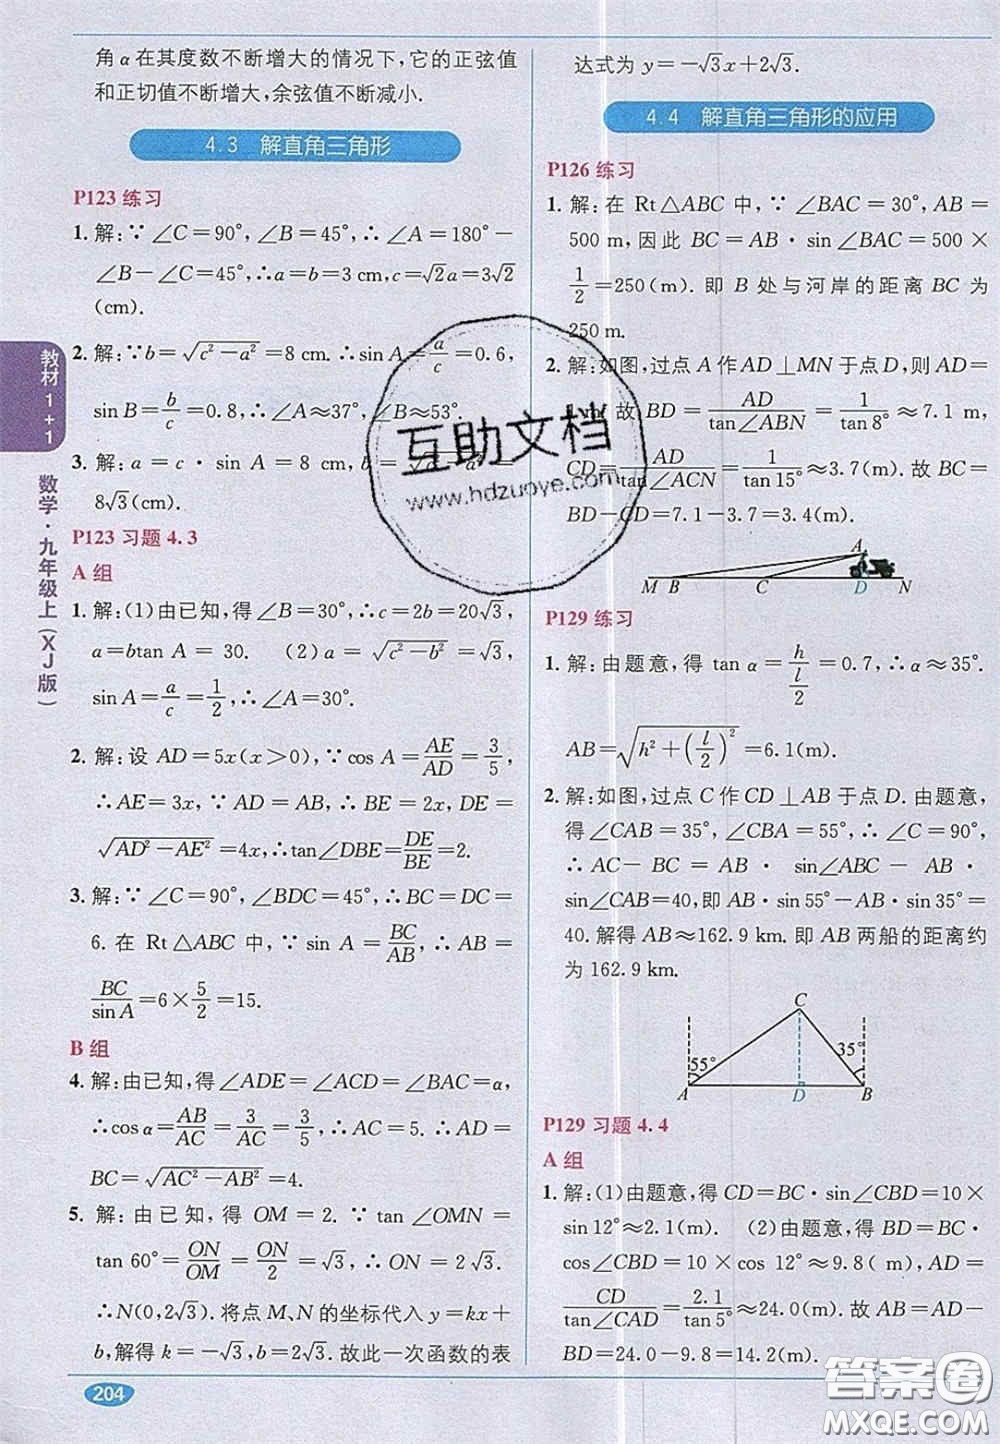 角α在其度数不断增大的情况下,它的正弦值
和正切值不断增大,余弦值不断减小.
4.3 解直角三角形
P123 练习
1. 解:∵∠C=90°,∠B=45°,∴∠A=180°-
∠B-∠C=45°,∴a=b=3 cm,c=√2a=3√2
(cm).
2. 解:∵b=√(c²-a²)=8 cm.∴sin A=a/c=0.6,
sin B=b/c=0.8,∴∠A≈37°,∠B≈53°.
3. 解:a=c·sin A=8
8√3(cm).
P123 习题 4.3
A 组
1. 解:(1)由已知,得∠B=30°,∴c=2b=20√3,
a=btan A=30. (2)a=√(c²-b²)=5√3,
sin A=a/c=1/2,∴∠A=30°.
2. 解:设 AD=5x(x>0),∵cos A=AE/AD=3/5,
∴AE=3x,∵AD=AB,∴BE=2x,DE=
√(AD²-AE²)=4x,∴tan∠DBE=DE/BE=2.
3. 解:∵∠C=90°,∠BDC=45°,∴BC=DC=
6. 在 Rt△ABC 中,∵sin A=BC/AB,∴AB=
BC/sin A=6×5/2=15.
B 组
4. 解:由已知,得∠ADE=∠ACD=∠BAC=α,
∴cos α=AB/AC=3/AC=3/5,∴AC=5.∴AB=3,
BC=√(AC²-AB²)=4.
5. 解:由已知,得 OM=2.∵tan∠OMN=
tan 60°=ON/OM=ON/2=√3,∴ON=2√3.
∴N(0,2√3).将点M、N的坐标代入 y=kx+
b,解得 k=-√3,b=2√3.故此一次函数的表
达式为 y=-√3x+2√3.
4.4 解直角三角形的应用
P126 练习
1. 解:在 Rt△ABC 中,∵∠BAC=30°,AB=
500 m,因此 BC=AB·sin∠BAC=500×
1/2=250(m).即 B 处与河岸的距离 BC 为
250 m.
2. 解:如图,过点 A 作 AD⊥MN 于点 D,则 AD=
故 BD=AD/tan∠ABN=1/tan 8°≈7.1 m,
CD=AD/tan∠ACN=1/tan 15°≈3.7(m).故 BC=
BD-CD=7.1-3.7=3.4(m).
A
M B C D N
P129 练习
1. 解:由题意,得 tan α=h/(l/2)=0.7,∴α≈35°.
AB=√(h²+(l/2)²)=6.1(m).
2. 解:如图,过点 C 作 CD⊥AB 于点 D.由题意,
得∠CAB=35°,∠CBA=55°,∴∠C=90°,
∴AC-BC=AB·sin∠ABC-AB·
sin∠CAB=40,即 AB·sin 55°-AB·sin 35°=
40.解得 AB≈162.9 km.即 AB 两船的距离约
为 162.9 km.
C
55° 35°
A D B
P129 习题 4.4
A 组
1. 解:(1)由题意,得 CD=BC·sin∠CBD=10×
sin 12°≈2.1(m). (2)由题意,得 BD=BC·
cos∠CBD=10×cos 12°≈9.8(m),AD=
CD/tan∠CAD=2.1/tan 5°≈24.0(m).故 AB=AD-
BD=24.0-9.8=14.2(m).
教材1+1
数学·九年级上(XJ版)
204
互助文档
www.hdzuoye.com
答案圈
MXQE.COM